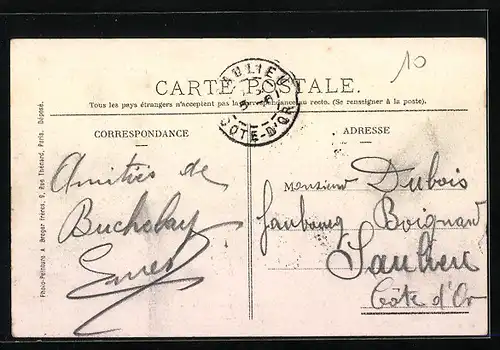 10
SAULIEU
CÔTE-D'OR
CARTE POSTALE.
Tous les pays étrangers n'acceptent pas la correspondance au recto. (Se renseigner à la poste).
CORRESPONDANCE
ADRESSE
Amitiés de
Ernest
Monsieur Dubois
faubourg
Saulieu
Côte d'Or
Photo-Peinture A. Breger frères, 9, Rue Thénard, Paris. Déposé.